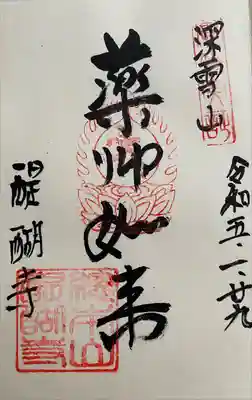 深雪山
令和五一廿九
薬師如来
醍醐寺